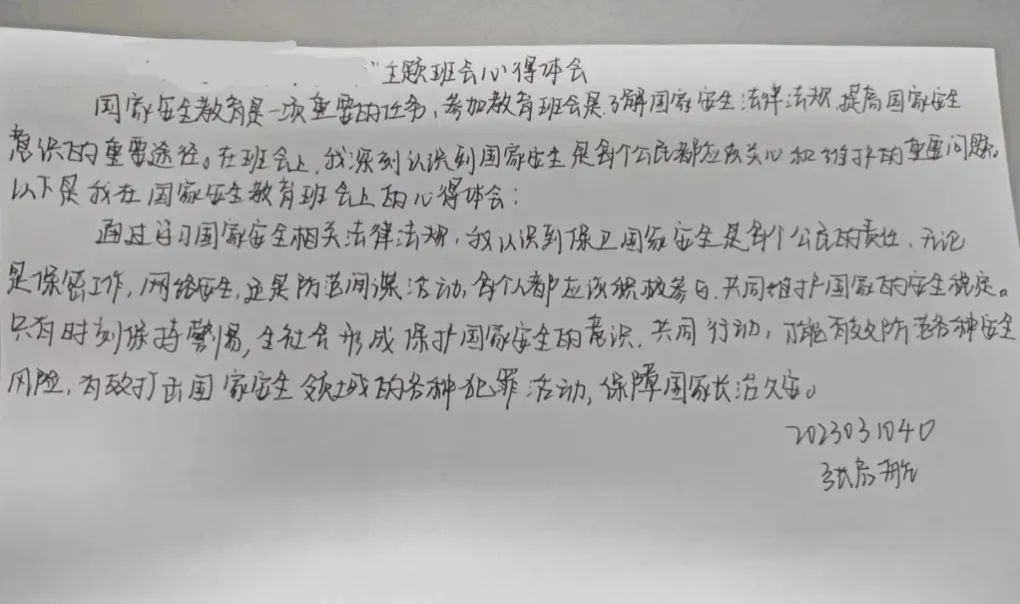 ”主题班会心得体会
国家安全教育是一项重要的任务，参加教育班会是了解国家安全法律法规，提高国家安全
意识的重要途径。在班会上，我深刻认识到国家安全是每个公民都应该关心和维护的重要问题。
以下是我在国家安全教育班会上的心得体会：
通过学习国家安全相关法律法规，我认识到保卫国家安全是每个公民的责任，无论
是保密工作，网络安全，还是防范间谍活动，每个人都应该积极参与，共同维护国家的安全稳定。
只有时刻保持警惕，全社会形成保护国家安全的意识，共同行动，才能有效防范各种安全
风险，有效打击国家安全领域的各种犯罪活动，保障国家长治久安。
2023031040
张启航